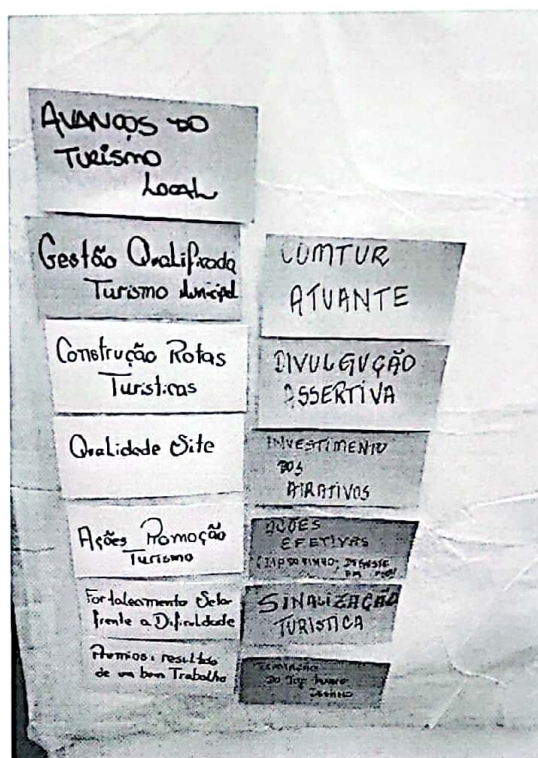 AVANÇOS DO
TURISMO
LOCAL
Gestão Qualificada
Turismo Municipal
Construção Rotas
Turísticas
Qualidade Site
Ações Promoção
Turismo
Fortalecimento Setor
frente a Dificuldade
Premios: resultado
de um bom Trabalho
COMTUR
ATUANTE
DIVULGUÇÃO
ASSERTIVA
INVESTIMENTO
DOS
ATRATIVOS
AÇÕES
EFETIVAS
SINALIZAÇÃO
TURISTICA
DO